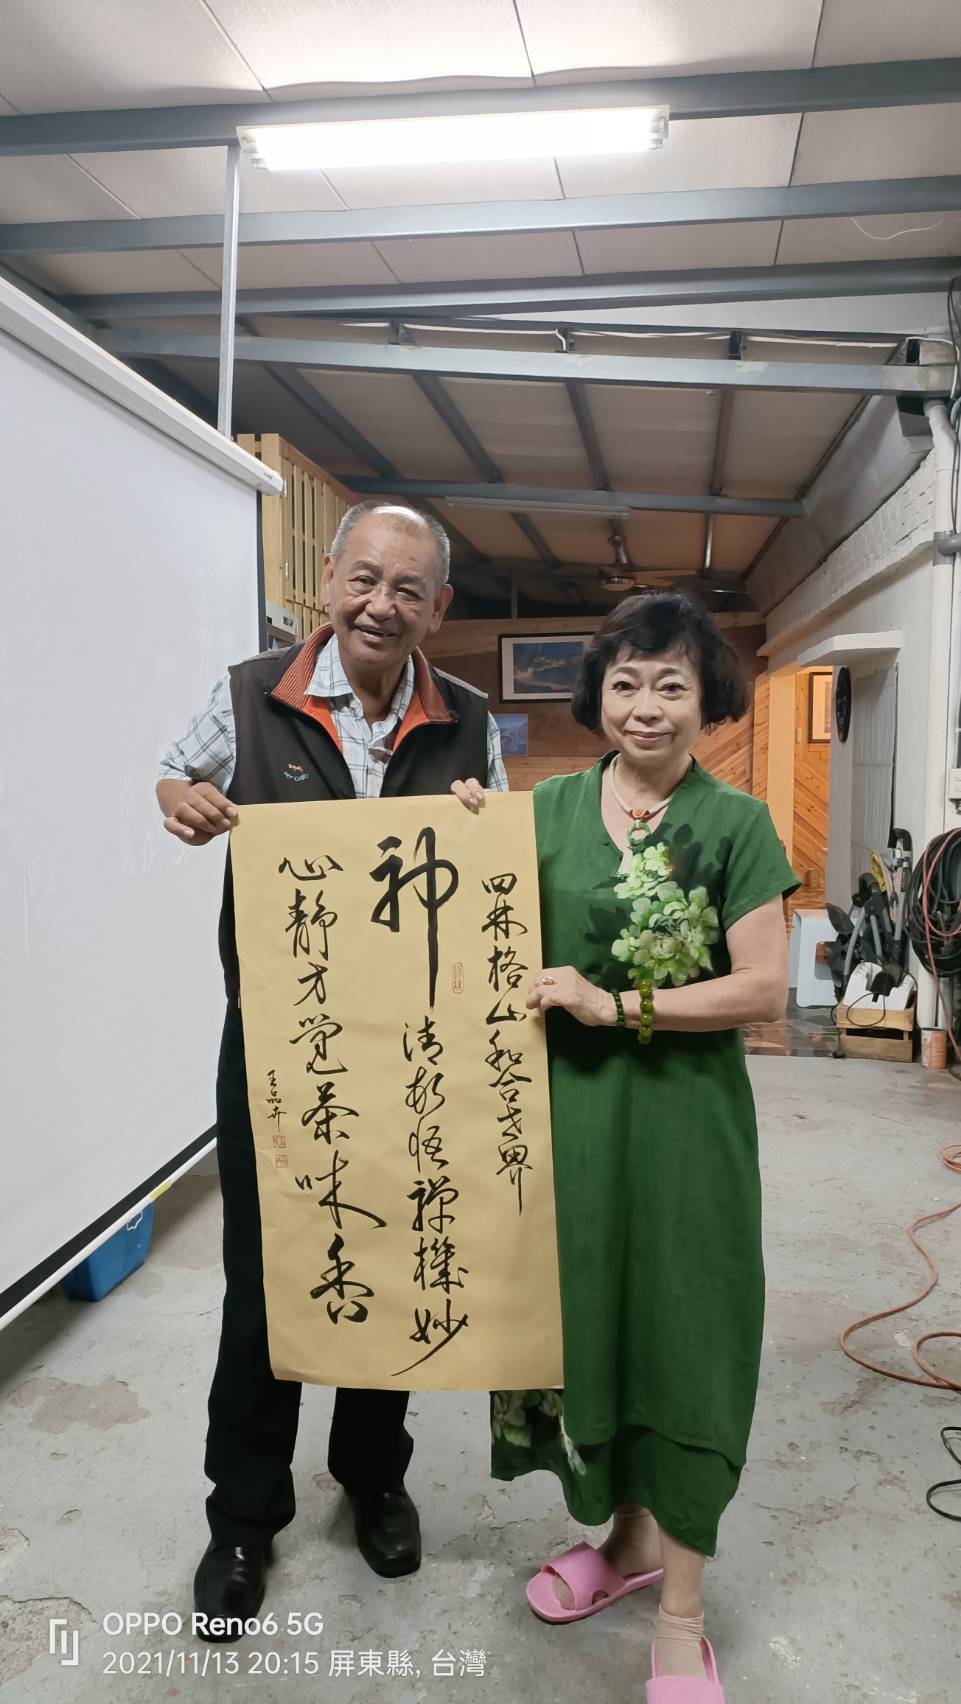 四林格山和合世界
神清悟禪機妙
心靜方覺茶味香
王品卉
OPPO Reno6 5G
2021/11/13 20:15 屏東縣, 台灣